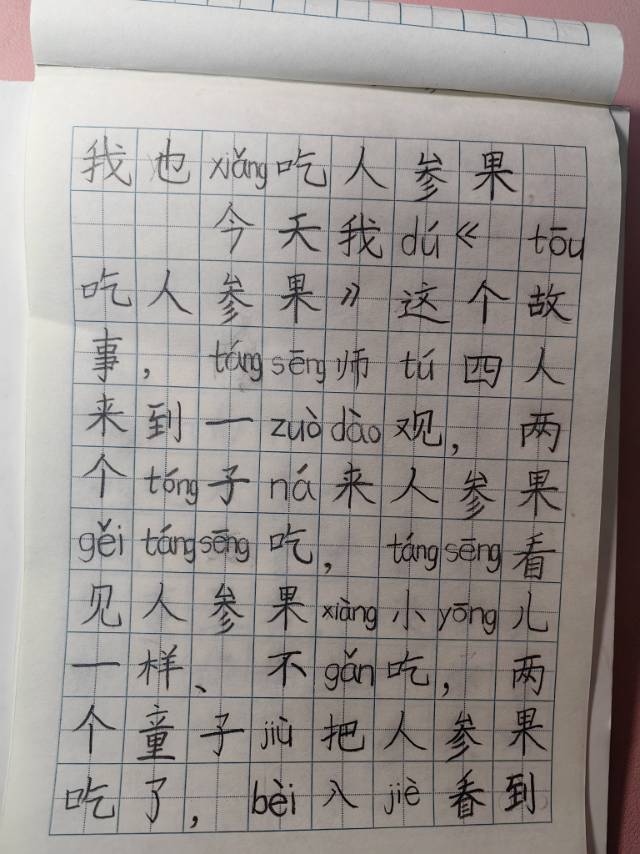 我也xiǎng吃人参果
今天我dú《tōu
吃人参果》这个故
事，táng sēng师tú四人
来到一zuò dào观，两
个tóng子ná来人参果
gěi táng sēng吃，táng sēng看
见人参果xiàng小yōng儿
一样、不gǎn吃，两
个童子jiù把人参果
吃了，bèi入jiè看到